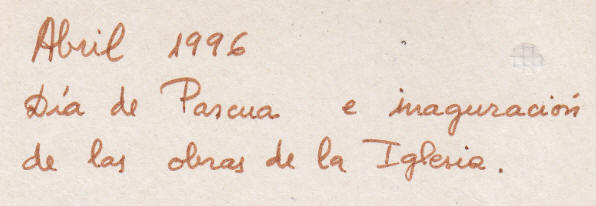 Abril 1996
Día de Pascua e inaguración
de las obras de la Iglesia.